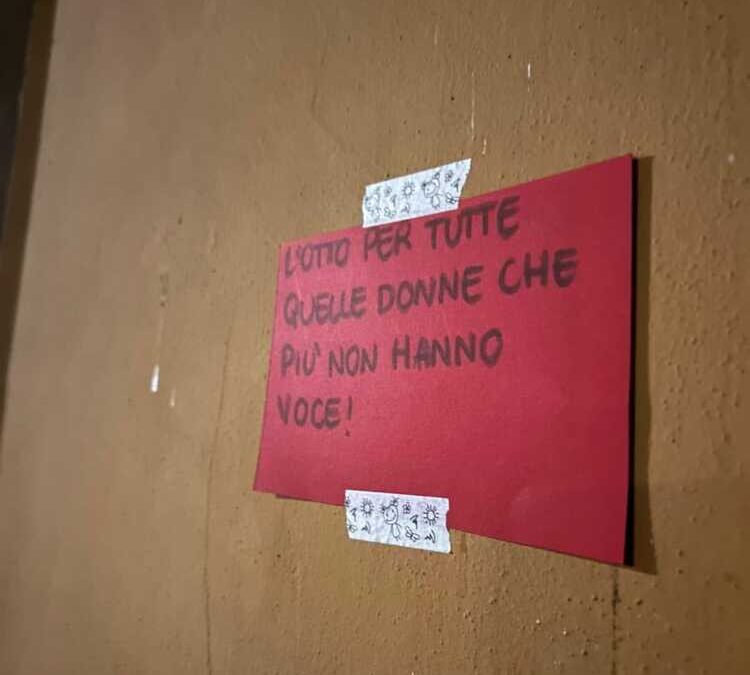 L'OTTO PER TUTTE
QUELLE DONNE CHE
PIU' NON HANNO
VOCE!